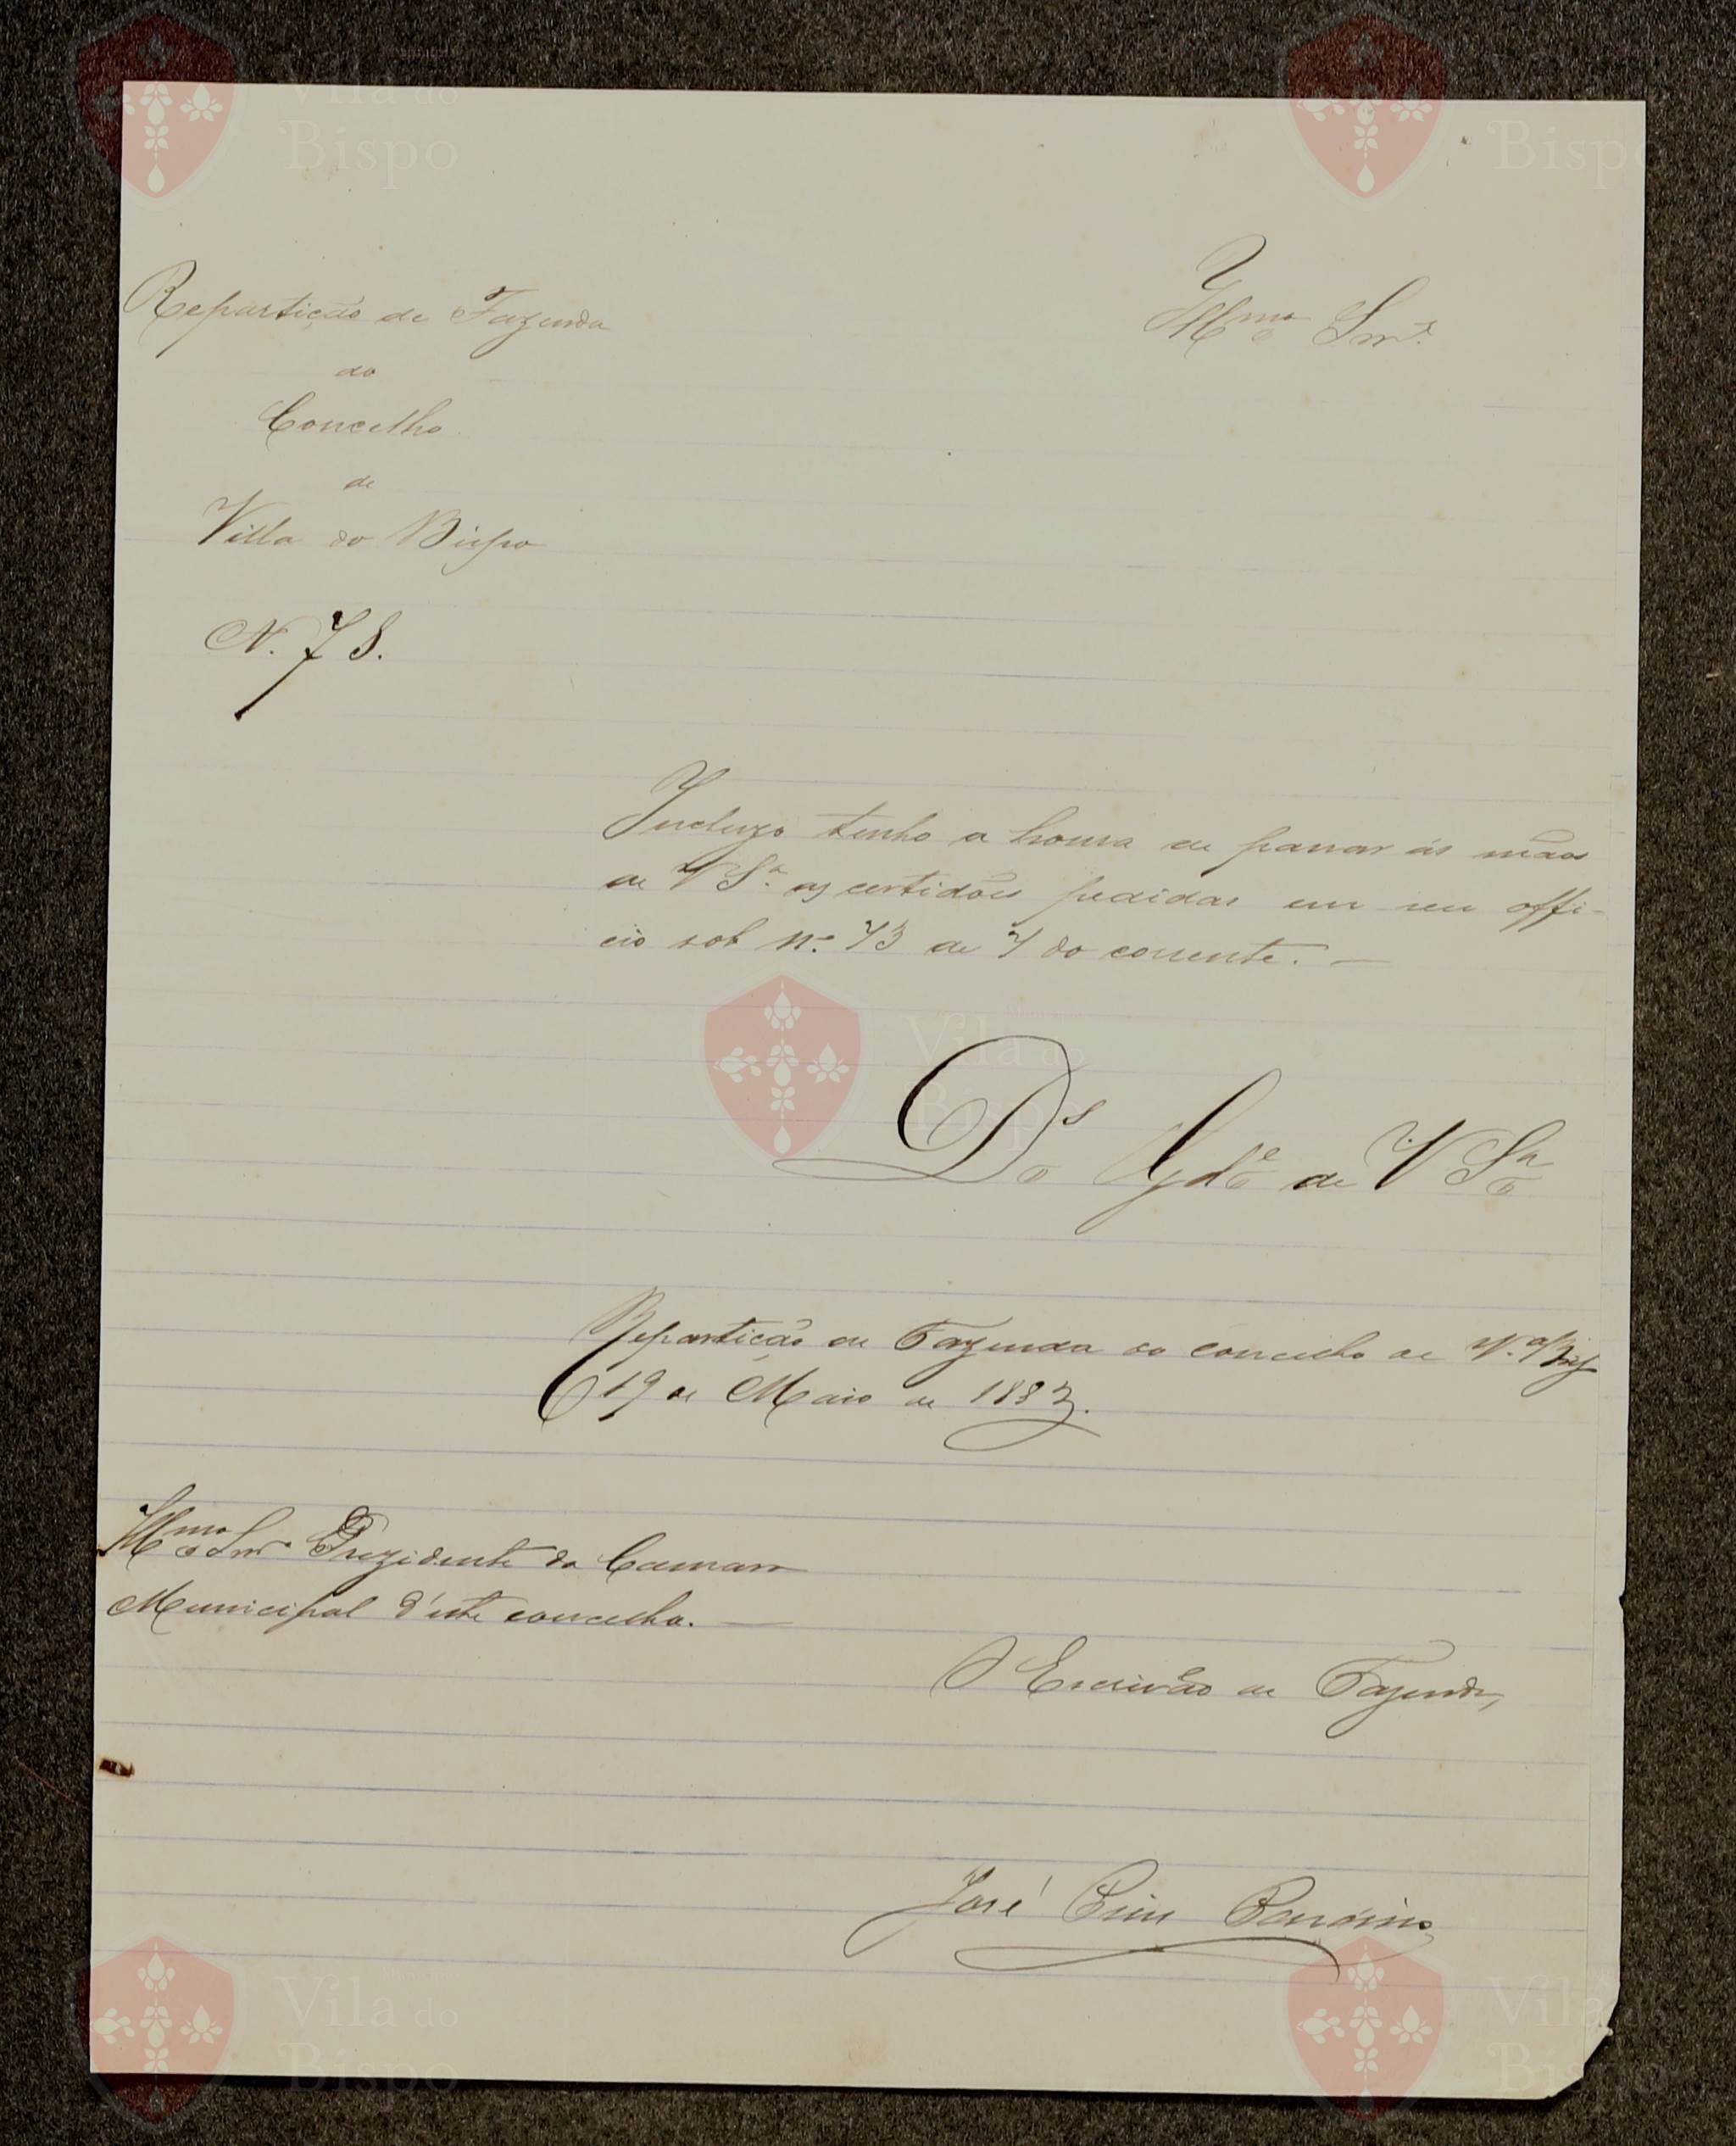 Repartição de Fazenda
do
Concelho
de
Villa do Bispo
N. 78.
Illmo Snr.
Incluzo tenho a honra de passar ás mãos
de V Sª. as certidões pedidas em seu offi-
cio sob nº. 73 de 7 do corrente. —
Ds Gde de V Sª
Repartição de Fazenda do concelho de Vª. Bispo
19 de Maio de 1883.
Illmo Snr Prezidente da Camara
Municipal d'este concelho. —
O Escrivão de Fazenda,
José
Vila do
Bispo